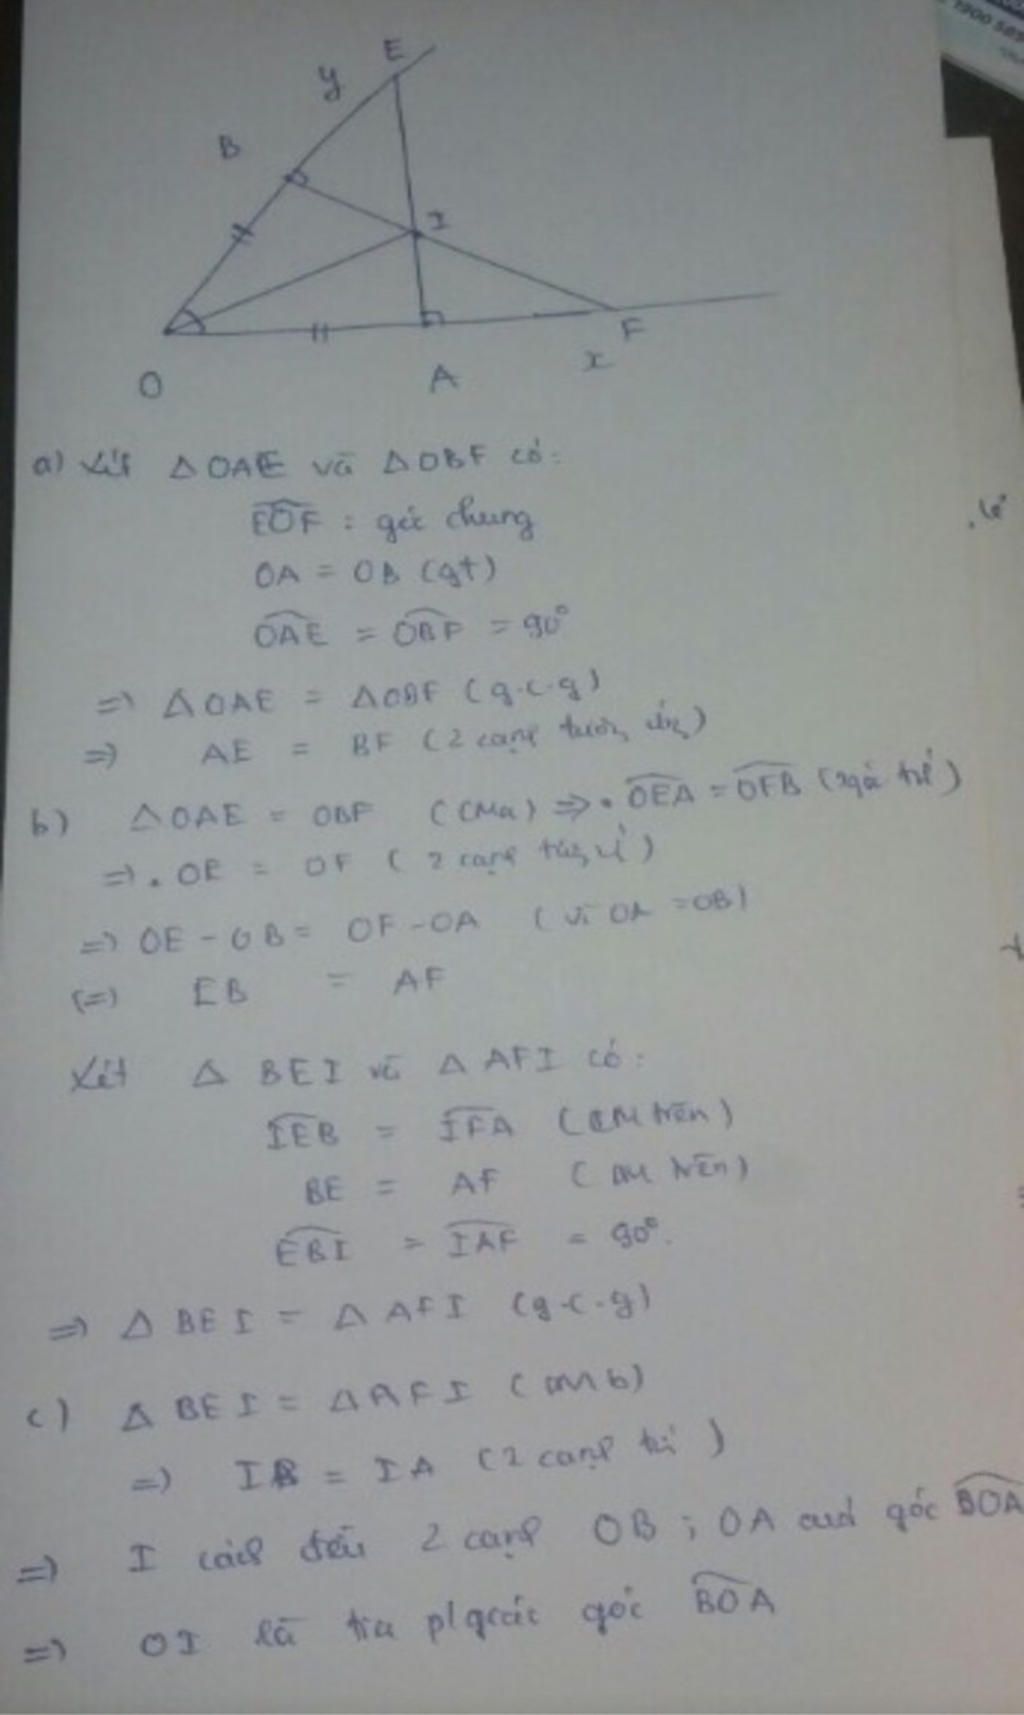 1900 585
E
y
B
I
F
O
A
x
a) Xét Δ OAE và Δ OBF có:
EOF : góc chung
OA = OB (gt)
OAE = OBF = 90°
=> Δ OAE = Δ OBF (g.c.g)
=> AE = BF (2 cạnh tương ứng)
b) Δ OAE = OBF (CMa) => . OEA = OFB (2góc tư)
=> . OE = OF (2 cạnh tư)
=> OE - OB = OF - OA (vì OA = OB)
(=) EB = AF
Xét Δ BEI và Δ AFI có:
IEB = IFA (CM trên)
BE = AF (CM trên)
EBI = IAF = 90°.
=> Δ BEI = Δ AFI (g-c-g)
c) Δ BEI = Δ AFI (CM b)
=> IB = IA (2 cạnh tư)
=> I cách đều 2 cạnh OB ; OA của góc BOA
=> OI là tia p/giác góc BOA